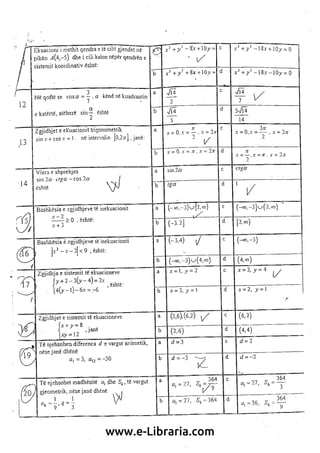 Ekuacioni i rrethit qendra e të cilit gjendet në
pikën A(4,-5) dhe i cili kalon nëpër qendrën e
sistemit koordinativ është:
x² + y² - 8x + 10y =
c x² + y² - 18x + 10y = 0
b x² + y² + 8x + 10y =
d x² + y² - 18x - 10y = 0
12
Në qoftë se cos α = 3/7, α kënd në kuadrantin
e katërt, atëherë sin α/2 është
a √14/2
c √14/7
b
d 5√14/14
13
Zgjidhjet e ekuacionit trigonometrik
sin x + cos x = 1 në intervalin [0,2π], janë:
a x = 0, x = π/2, x = 2π
c x = 0, x = 3π/2, x = 2π
b x = 0, x = π, x = 2π
d x = π/2, x = π, x = 2π
14
Vlera e shprehjes
sin 2α · ctgα - cos 2α
është
a sin 2α
c ctgα
b tgα
d 1
15
Bashkësia e zgjidhjeve të inekuacionit
(x-2)/(x+3) ≥ 0, është:
a (-∞,-3]∪[2,∞)
c (-∞,-3)∪[2,∞)
b (-3,2]
d [2,∞)
16
Bashkësia e zgjidhjeve të inekuacionit
|x² - x - 3| < 9, është:
a (-3,4)
c (-∞,-3)
b (-∞,-3)∪(4,∞)
d (4,∞)
17
Zgjidhja e sistemit të ekuacioneve
y + 2 - 3(y - 4) = 2x
4(y - 1) - 6x = -6
, është:
a x = 1, y = 2
c x = 3, y = 4
b x = 3, y = 1
d x = 2, y = 1
18
Zgjidhjet e sistemit të ekuacioneve
x + y = 8
xy = 12
, janë
a (2,6),(6,2)
c (6,2)
b (2,6)
d (4,4)
19
Të njehsohen diferenca d e vargut aritmetik,
nëse janë dhënë
a₁ = 3, a₁₂ = -30
a d = 3
c d = 2
b d = -3
d d = -2
20
Të njehsohet madhësitë a₁ dhe S₆, të vargut
gjeometrik, nëse janë dhënë
a₆ = 1/9, q = 1/3
a a₁ = 27, S₆ = 364/9
c a₁ = 27, S₆ = 364/3
b a₁ = 27, S₆ = 364
d a₁ = 36, S₆ = 364/9
www.e-Libraria.com